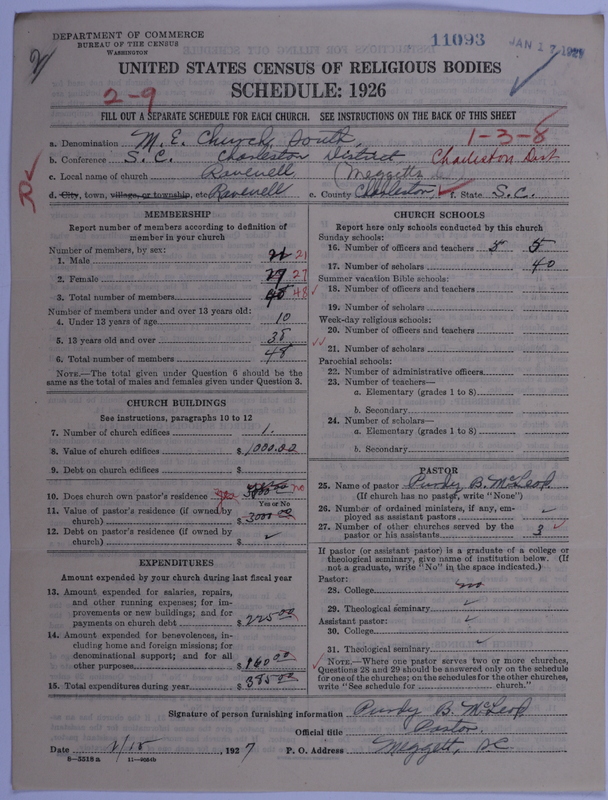 DEPARTMENT OF COMMERCE
BUREAU OF THE CENSUS
WASHINGTON
11093
JAN 17 1927
UNITED STATES CENSUS OF RELIGIOUS BODIES
SCHEDULE: 1926
2-9
FILL OUT A SEPARATE SCHEDULE FOR EACH CHURCH. SEE INSTRUCTIONS ON THE BACK OF THIS SHEET
1-3-8
a. Denomination M. E. Church, South,
b. Conference S. C. Charleston District, Charleston Dist
c. Local name of church Ravenell (Meggetts
d. City, town, village, or township, etc. Ravenell e. County Charleston, f. State S. C.
MEMBERSHIP
Report number of members according to definition of member in your church
Number of members, by sex:
1. Male 21
2. Female 27
3. Total number of members 48
Number of members under and over 13 years old:
4. Under 13 years of age 10
5. 13 years old and over 38
6. Total number of members 48
NOTE.—The total given under Question 6 should be the
same as the total of males and females given under Question 3.
CHURCH BUILDINGS
See instructions, paragraphs 10 to 12
7. Number of church edifices 1.
8. Value of church edifices $ 1000.00
9. Debt on church edifices $
10. Does church own pastor's residence no
Yes or No
11. Value of pastor's residence (if owned by
church) $ 3000.00
12. Debt on pastor's residence (if owned by
church) $
EXPENDITURES
Amount expended by your church during last fiscal year
13. Amount expended for salaries, repairs,
and other running expenses; for im-
provements or new buildings; and for
payments on church debt $ 225.00
14. Amount expended for benevolences, in-
cluding home and foreign missions; for
denominational support; and for all
other purposes $ 160.00
15. Total expenditures during year $ 385.00
CHURCH SCHOOLS
Report here only schools conducted by this church
Sunday schools:
16. Number of officers and teachers 5 5
17. Number of scholars 40
Summer vacation Bible schools:
18. Number of officers and teachers
19. Number of scholars
Week-day religious schools:
20. Number of officers and teachers
21. Number of scholars
Parochial schools:
22. Number of administrative officers
23. Number of teachers—
a. Elementary (grades 1 to 8)
b. Secondary
24. Number of scholars—
a. Elementary (grades 1 to 8)
b. Secondary
PASTOR
25. Name of pastor Purdy B. McLeod
(If church has no pastor, write "None")
26. Number of ordained ministers, if any, em-
ployed as assistant pastors
27. Number of other churches served by the
pastor or his assistants 3
If pastor (or assistant pastor) is a graduate of a college or
theological seminary, give name of institution below. (If
not a graduate, write "No" in the space indicated.)
Pastor:
28. College no
29. Theological seminary
Assistant pastor:
30. College
31. Theological seminary
NOTE.—Where one pastor serves two or more churches,
Questions 28 and 29 should be answered only on the schedule
for one of the churches; on the schedules for the other churches,
write "See schedule for church."
Signature of person furnishing information Purdy B. McLeod
Official title Pastor,
Date 1/15, 1927 P. O. Address Meggett, SC
8-5518a 11-9084b